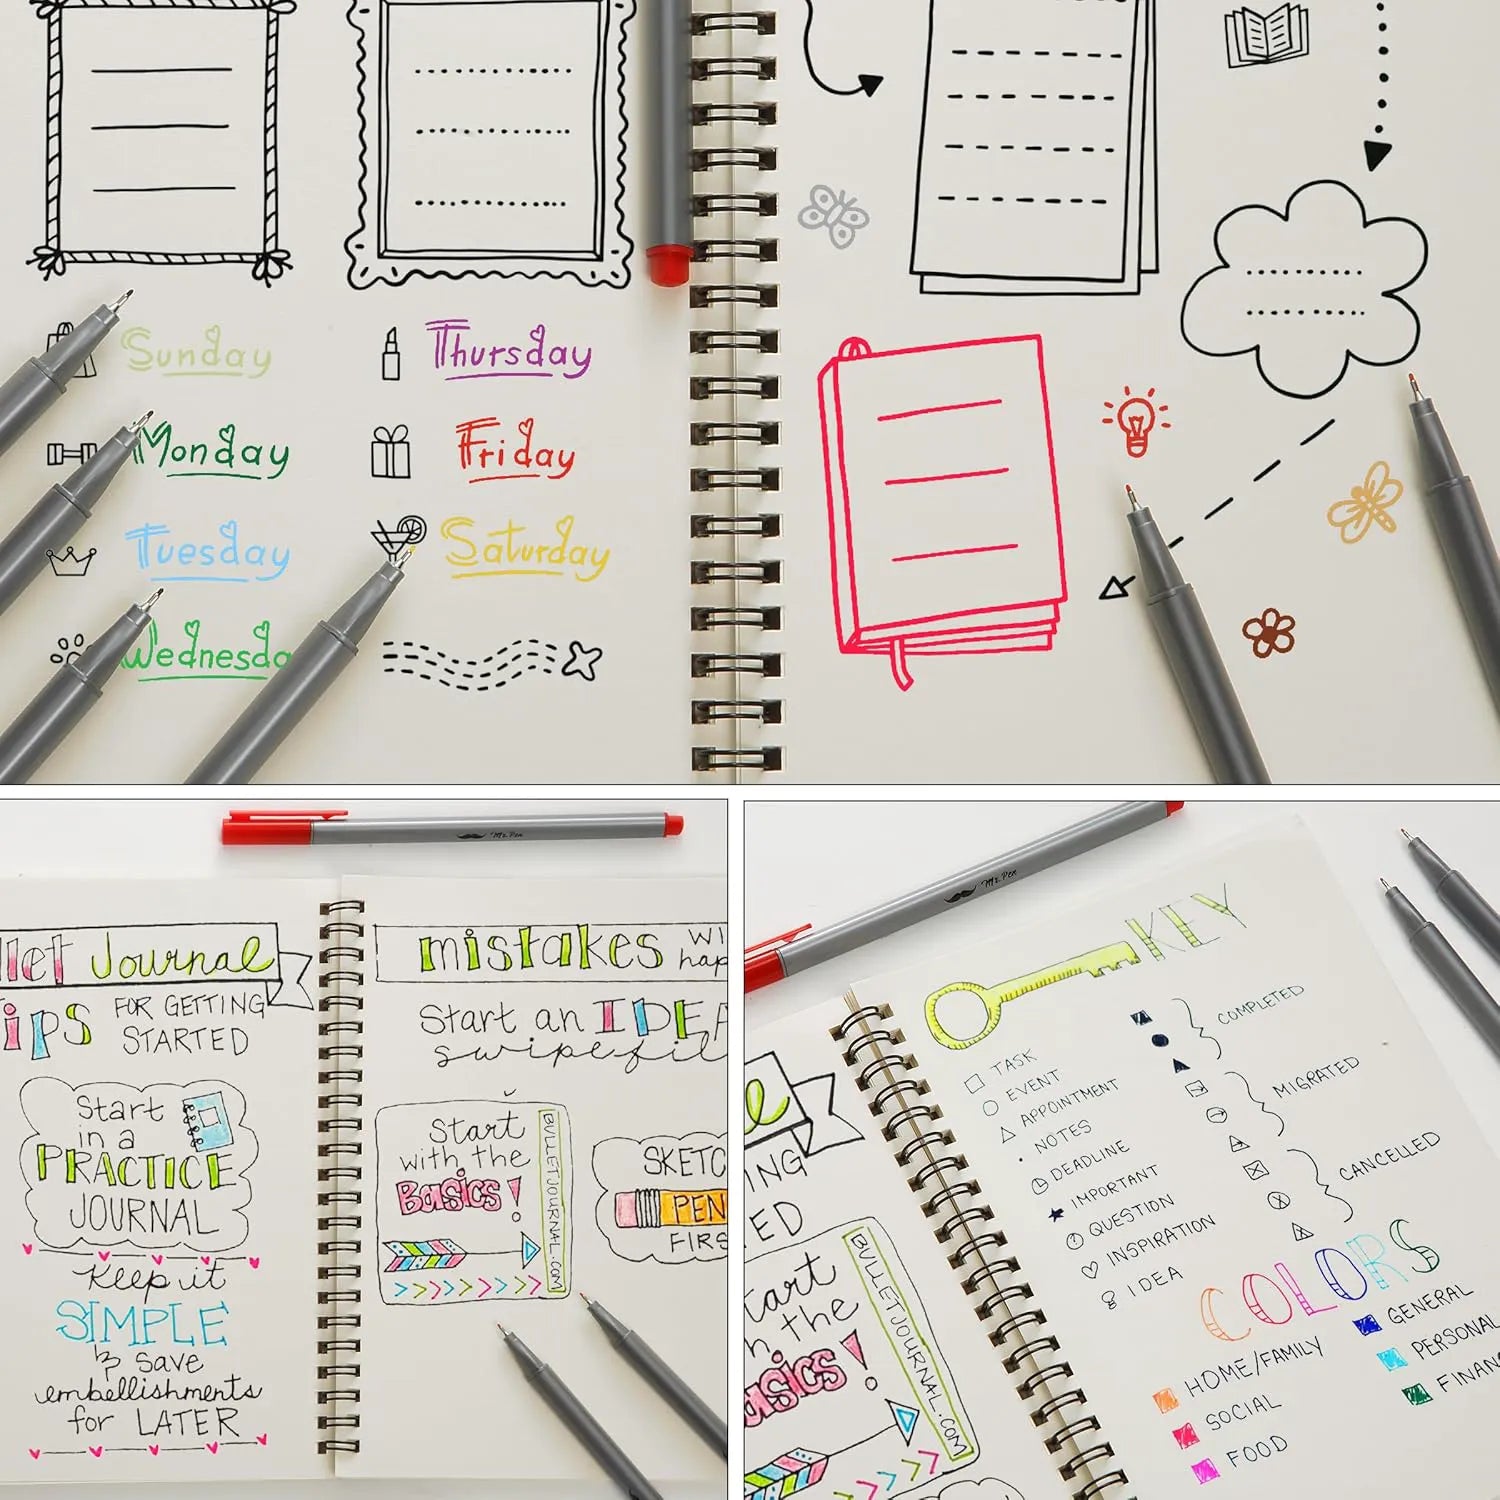 Sunday
Thursday
Monday
Friday
Tuesday
Saturday
Wednesda
Mr. Pen
llet Journal
Tips FOR GETTING
STARTED
Start
in a
PRACTICE
JOURNAL
Keep it
SIMPLE
& save
embellishments
for LATER
mistakes WI
hap
Start an IDEA
swipe fil
Start
with the
Basics!
BULLETJOURNAL.COM
SKETC
PEN
FIRS
Mr. Pen
KEY
TASK
EVENT
APPOINTMENT
NOTES
DEADLINE
IMPORTANT
QUESTION
INSPIRATION
IDEA
COMPLETED
MIGRATED
CANCELLED
COLORS
HOME/FAMILY
SOCIAL
FOOD
GENERAL
PERSONAL
FINAN
ING
ED
tart
h the
asics!
BULLETJOURNAL.COM